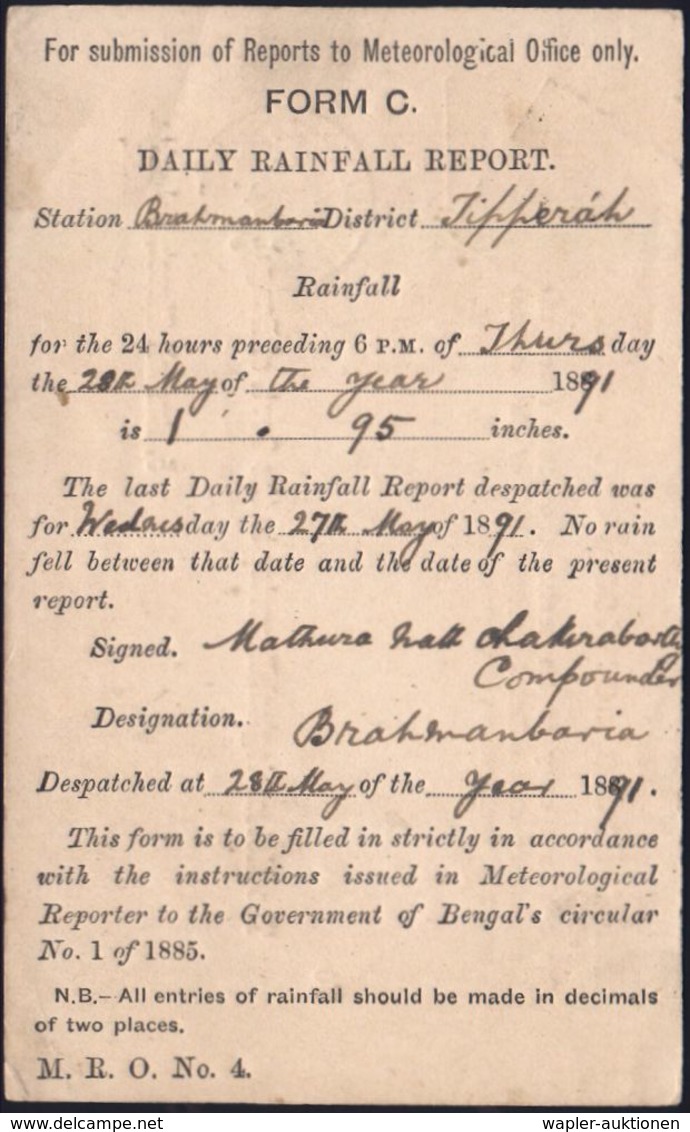 For submission of Reports to Meteorological Office only.
FORM C.
DAILY RAINFALL REPORT.
Station Brahmanbaria District Tipperáh
Rainfall
for the 24 hours preceding 6 P.M. of Thurs day
the 28th May of the year 1891
is 1 . 95 inches.
The last Daily Rainfall Report despatched was
for Wednesday the 27th May of 1891. No rain
fell between that date and the date of the present
report.
Signed. Mathura Nath Chakraborth
Compounder
Designation. Brahmanbaria
Despatched at 28th May of the Year 1891.
This form is to be filled in strictly in accordance
with the instructions issued in Meteorological
Reporter to the Government of Bengal's circular
No. 1 of 1885.
N.B.—All entries of rainfall should be made in decimals
of two places.
M. R. O. No. 4.
www.delcampe.net
wapler-auktionen